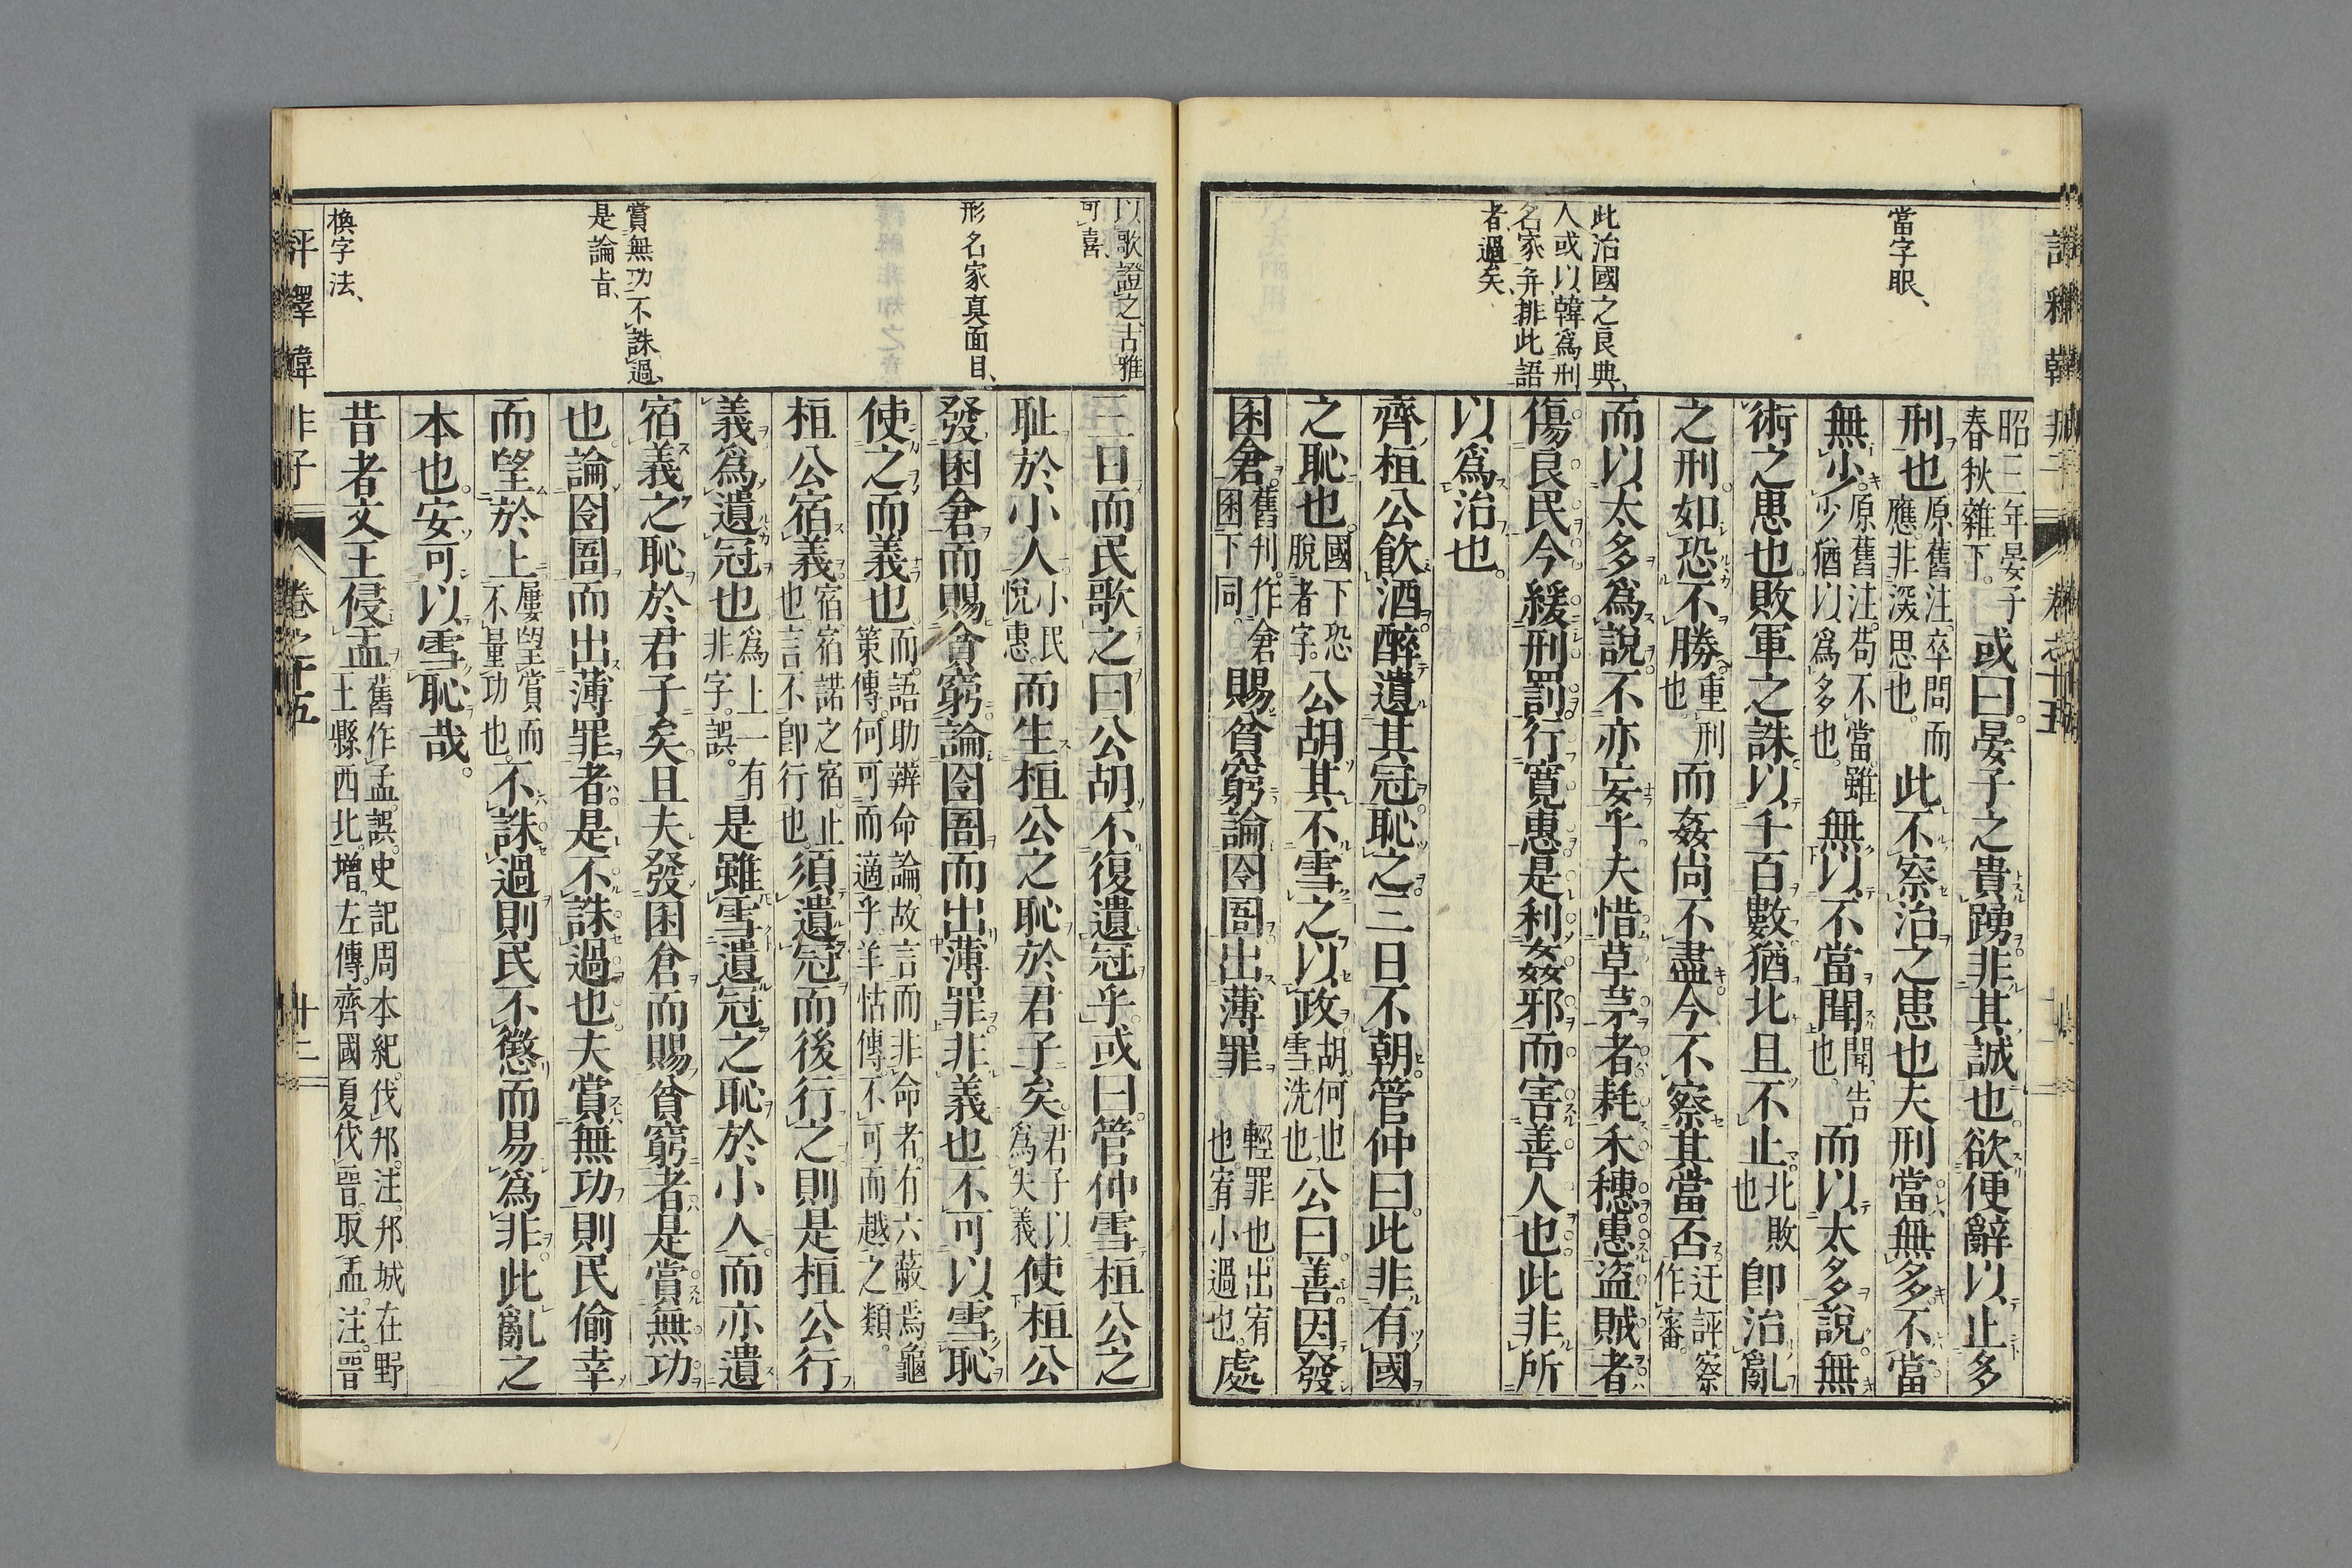 當字眼、
此治國之良典、
人或以韓爲刑
名家弁排此語
者過矣、
昭三年晏子
春秋雜下。或曰。晏子之貴踊非其誠也。欲便辭以止多
刑也原舊注。卒問而
應。非深思也。此不察治之患也夫刑當無多不當
無少。原舊注。苟不當。雖
少猶以爲多也。無以不當聞聞。告
也。而以太多說。無
術之患也敗軍之誅以千百數猶北且不止北敗
也卽治亂
之刑如恐不勝重刑
也而姦尚不盡今不察其當否迂評察
作審。
而以太多爲說不亦妄乎。夫惜草茅者耗禾穗惠盜賊者
傷良民今緩刑罰行寬惠是利姦邪而害善人也此非所
以爲治也。
齊桓公飮酒醉遺其冠恥之三日不朝管仲曰。此非有國
之恥也。國下恐
脫者字。公胡其不雪之以政胡。何也。
雪。洗也公曰善因發
囷倉舊刋作倉
囷下同。賜貧窮論囹圄出薄罪輕罪也。出宥
也。宥小過也。處
以歌證之古雅
可喜、
形名家真面目、
賞無功不誅過、
是論㫖、
換字法、
三日而民歌之曰公胡不復遺冠乎或曰管仲雪桓公之
耻於小人小民
悅惠。而生桓公之恥於君子矣君子以
爲失義使桓公
發囷倉而賜貧窮論囹圄而出薄罪非義也不可以雪恥
使之而義也而。語助。辨命論。故言而非命者。有六蔽焉。龜
策傳。何可而適乎。羊怙傳。不可而越之類。
桓公宿義宿。宿諾之宿。止
也。言不卽行也。須遺冠而後行之則是桓公行
義爲遺冠也爲上一有
非字。誤。是雖雪遺冠之恥於小人而亦遺
宿義之恥於君子矣且夫發囷倉而賜貧窮者是賞無功
也。論囹圄而出薄罪者是不誅過也。夫賞無功則民偷幸
而望於上屢望賞而
不量功也。不誅過則民不懲而易爲非此亂之
本也。安可以雪恥哉。
昔者文王侵盂舊作孟。誤。史記周本紀。伐邘。注。邘城在野
王縣西北。增。左傳。齊國夏伐晉。取盂。注。晉
評釋韓非子
卷之十五
十二